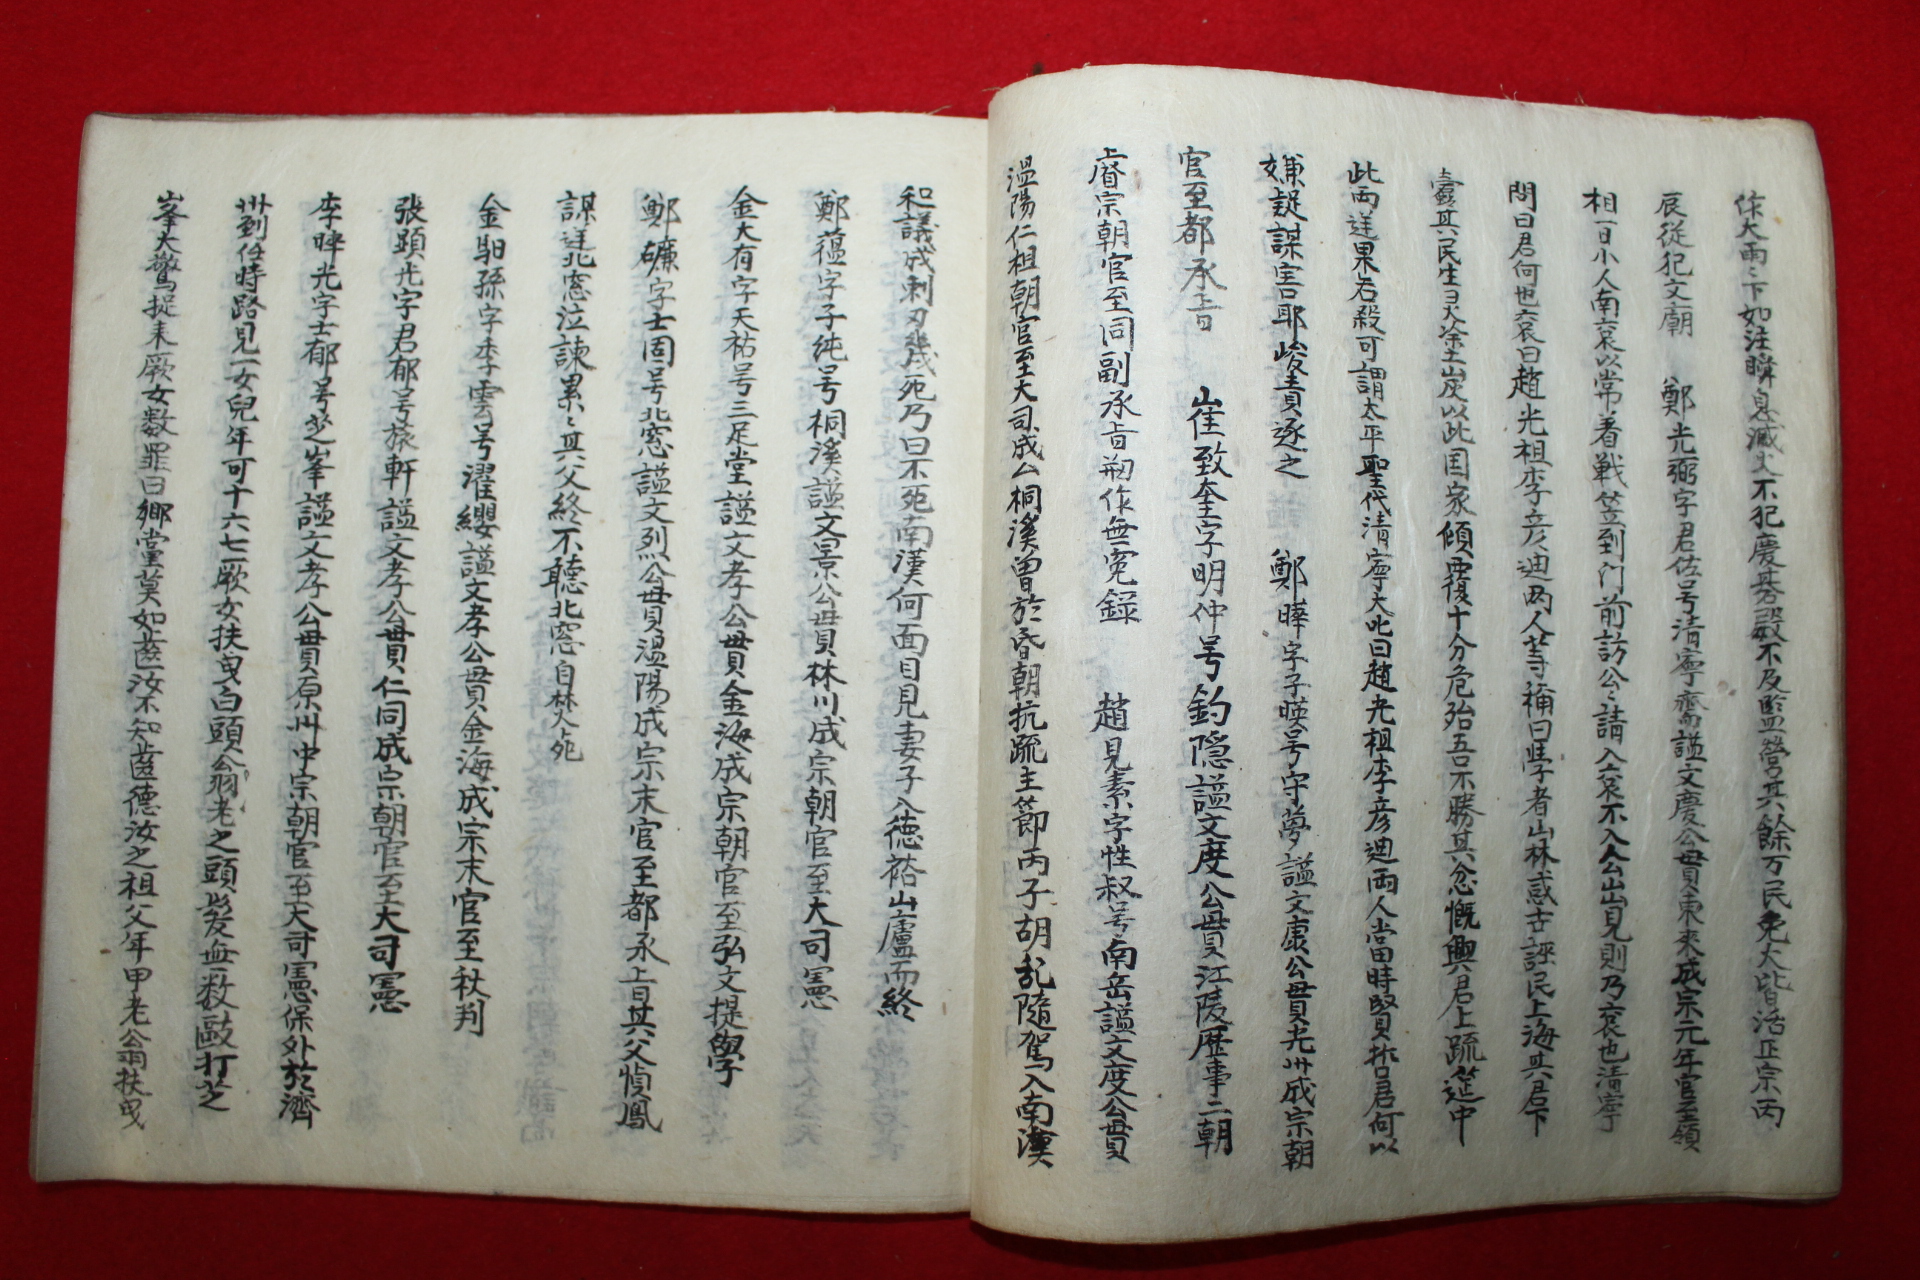 作大雨〻下如注瞬息滅火不犯慶基殿不及監營其餘万民免火皆活正宗丙
辰從祀文廟 鄭光弼字君佐号清寧齋謚文慶公貫東來成宗元年官至領
相一日小人南袞以常着戰笠到門前訪公〻請入袞不入公出見則乃袞也清寧
問曰君何也袞曰趙光祖李彦迪两人等稱曰學者山林惑古誣民上海其君下
蠹其民生灵塗土炭以此国家傾覆十分危殆吾不勝其忿慨與君上疏筵中
此两逆果若殺可謂太平聖代清寧大叱曰趙光祖李彦迪両人當時賢哲君何以
嫌疑謀害耶峻責逐之 鄭曄字子暎号守夢謚文康公貫光州成宗朝
官至都承旨 崔致奎字明仲号釣隠謚文度公貫江陵歴事二朝
上睿宗朝官至同副承旨刱作無寃録 趙見素字性叔号南岳謚文度公貫
溫陽仁祖朝官至大司成公桐溪曽於昏朝抗疏主節丙子胡乱隨駕入南漢
和議成刺刃幾死乃曰不死南漢何面目見妻子入德裕山廬而終
鄭蘊字子純号桐溪謚文景公貫林川成宗朝官至大司憲
金大有字天祐号三足堂謚文孝公貫金海成宗朝官至弘文提學
鄭礦字士固号北窓謚文烈公貫溫陽成宗末官至都承上旨其父慎鳳
謀逆北窓泣諫累〻其父終不聽北窓自焚死
金馹孫字季雲号濯纓謚文孝公貫金海成宗末官至秋判
張顕光字君郁号旅軒謚文孝公貫仁同成宗朝官至大司憲
李晬光字士郁号芝峯謚文孝公貫原州中宗朝官至大司憲保外於濟
州到任時路見一女兒年可十六七一厥女扶曳白頭翁老之頭髮無数敺打芝
峯大驚捉来厥女数罪曰鄉堂莫如齒汝不知齒德汝之祖父年甲老翁扶曳